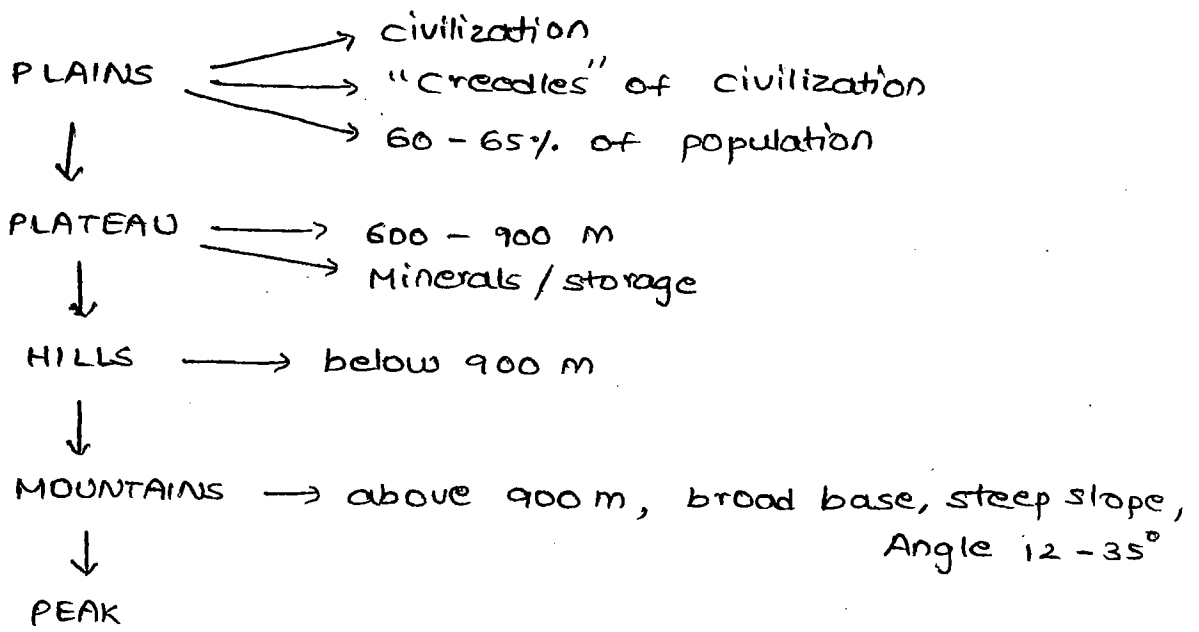 civilization
PLAINS → "Creedles" of civilization
→ 60 - 65% of population
↓
PLATEAU → 600 - 900 m
→ Minerals / storage
↓
HILLS → below 900 m
↓
MOUNTAINS → above 900 m, broad base, steep slope,
Angle 12 - 35°
↓
PEAK